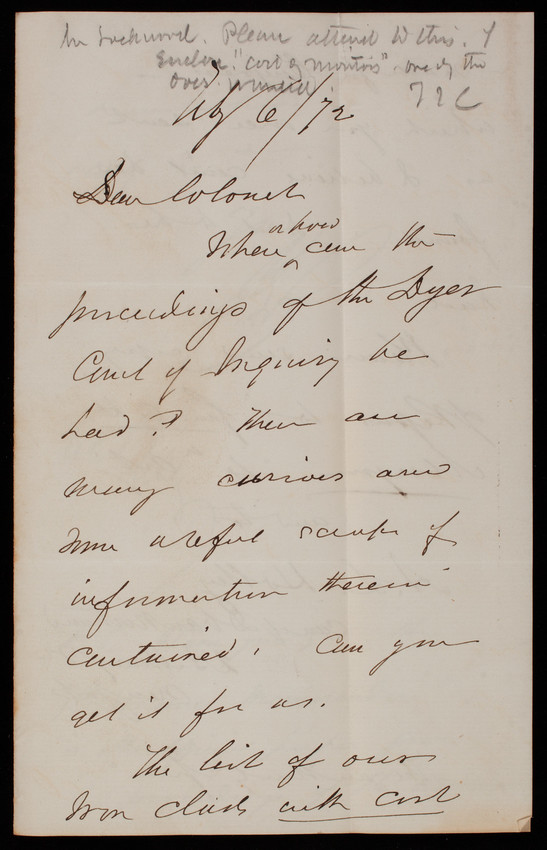 Mr Lockwood. Please attend to this. I
Enclose "cost of monitors" one of the
over
TLC
Feby 6/72
Dear Colonel
or how
Where can the
proceedings of the Dyer
Court of Inquiry be
had? There are
many curious and
some useful scraps of
information therein
contained. Can you
get it for us.
The list of our
Iron clads with cost